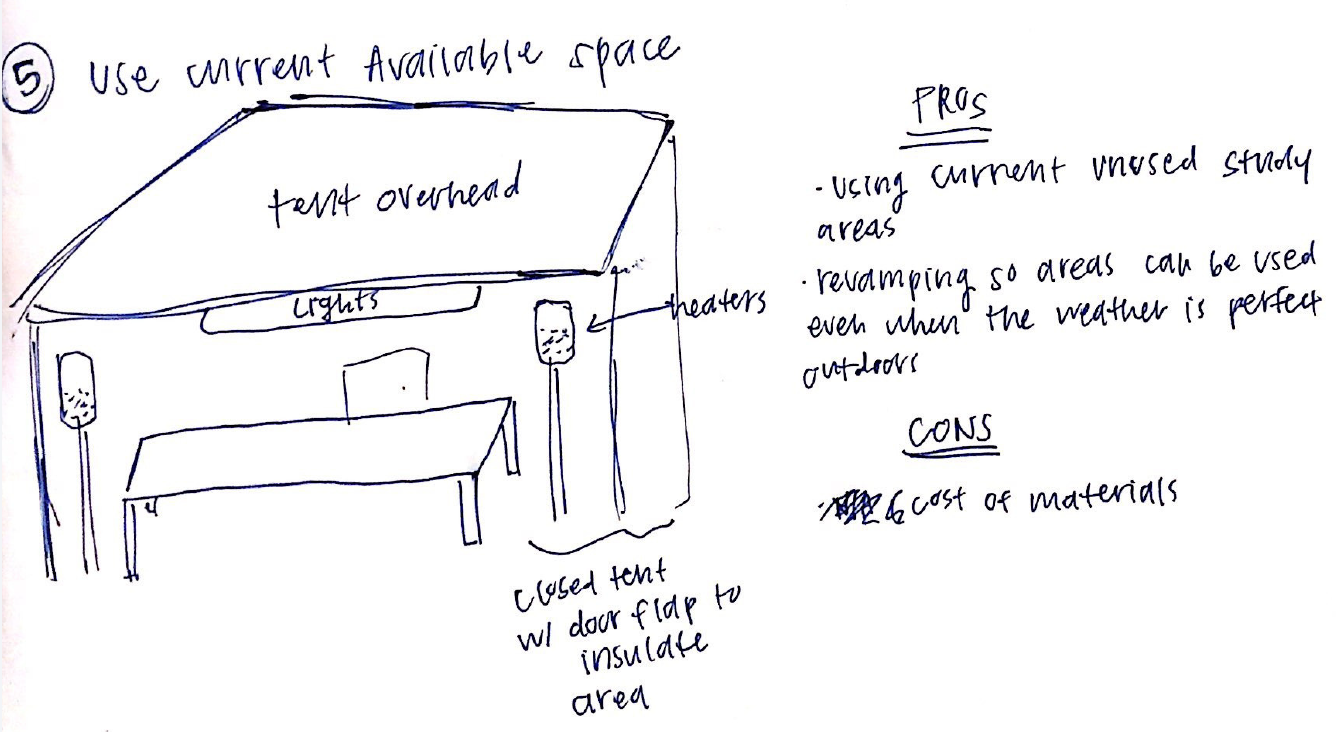 5 Use current Available space
tent overhead
Lights
heaters
closed tent
w/ door flap to
insulate
area
PROS
· using current unused study
areas
· revamping so areas can be used
even when the weather is perfect
outdoors
CONS
cost of materials